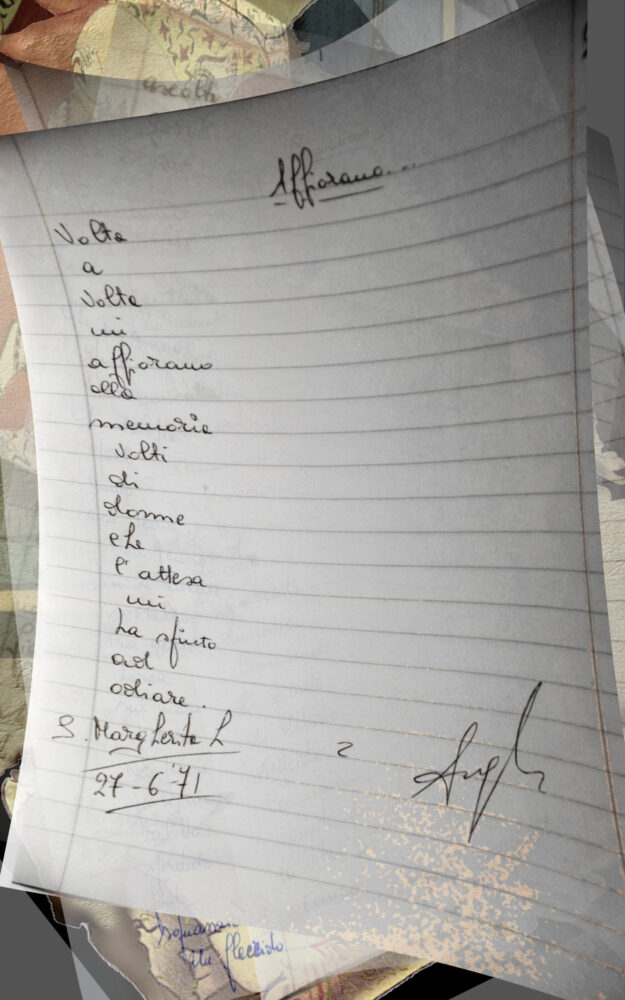 ascolti
Affiorano...
Volte
a
volte
mi
affiorano
alla
memoria
volti
di
donne
che
l'attesa
mi
ha spinto
ad
odiare.
S. Margherita L
27-6-'71
2